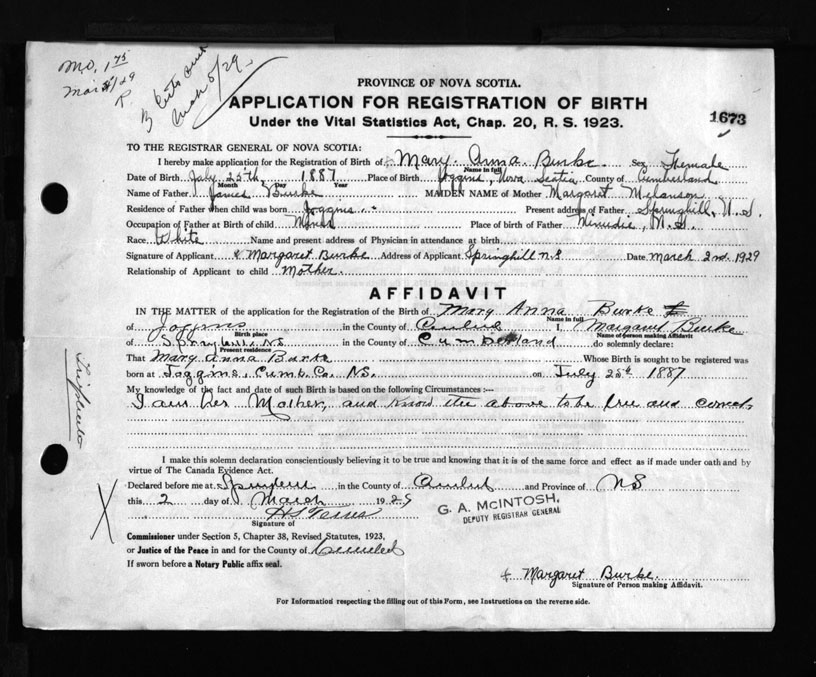 Mo. 1 75
Mar 2/29
March 5/29
PROVINCE OF NOVA SCOTIA.
APPLICATION FOR REGISTRATION OF BIRTH
1673
Under the Vital Statistics Act, Chap. 20, R. S. 1923.
TO THE REGISTRAR GENERAL OF NOVA SCOTIA:
I hereby make application for the Registration of Birth of Mary Anna Burke Sex Female
Name in full
Date of Birth July 25th 1887 Place of Birth Joggins, Nova Scotia County of Cumberland
Month Day Year
Name of Father James Burke MAIDEN NAME of Mother Margaret Melanson
Residence of Father when child was born Joggins Present address of Father Springhill, N.S.
Occupation of Father at Birth of child Place of birth of Father Minudie, N.S.
Race White Name and present address of Physician in attendance at birth
Signature of Applicant Margaret Burke Address of Applicant Springhill N.S Date March 2nd 1929
Relationship of Applicant to child Mother.
AFFIDAVIT
IN THE MATTER of the application for the Registration of Birth of Mary Anna Burke
Name in full
of Joggins in the County of I, Margaret Burke
Birth place Name of person making Affidavit
of Springhill, NS in the County of Cumberland do solemnly declare:
Present residence
That Mary Anna Burke Whose Birth is sought to be registered was
born at Joggins, Cumb. Co. NS. on July 25th 1887
My knowledge of the fact and date of such Birth is based on the following Circumstances:—
I am her Mother, and know the above to be true and correct
I make this solemn declaration conscientiously believing it to be true and knowing that it is of the same force and effect as if made under oath and by
virtue of The Canada Evidence Act.
Declared before me at in the County of and Province of NS
this 2 day of March 1929
G. A. McINTOSH,
DEPUTY REGISTRAR GENERAL
Signature of
Commissioner under Section 5, Chapter 38, Revised Statutes, 1923,
or Justice of the Peace in and for the County of
If sworn before a Notary Public affix seal.
Margaret Burke.
Signature of Person making Affidavit.
For Information respecting the filling out of this Form, see Instructions on the reverse side.
Triplicate